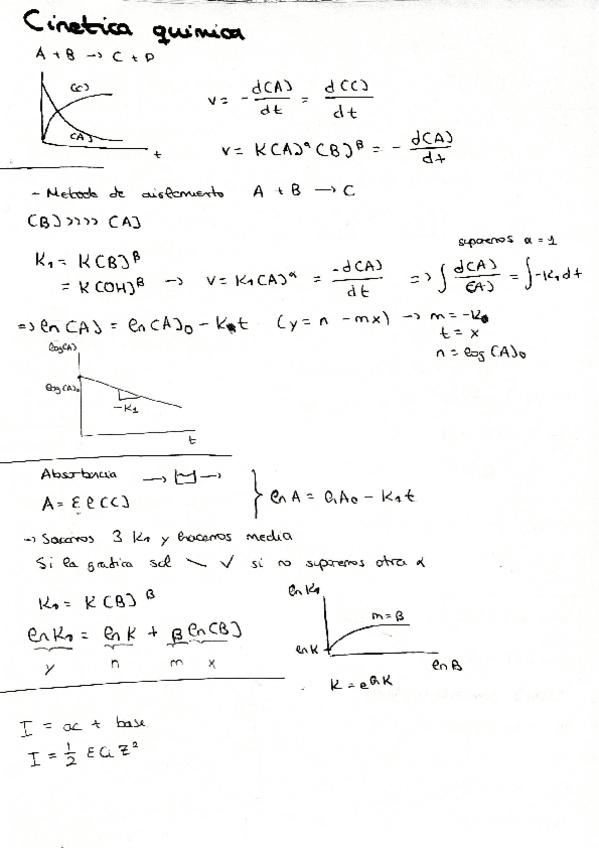 Cinetica quimica
A + B -> C + D
[C]
[A]
t
v = - d[A]/dt = d[C]/dt
v = K[A]^α [B]^β = - d[A]/dt
- Metodo de aislamiento A + B -> C
[B] >>>> [A]
suponemos α = 1
K₁ = K[B]^β
= K[OH]^β -> v = K₁[A]^α = -d[A]/dt => ∫ d[A]/[A] = ∫ -K₁dt
=> ln[A] = ln[A]₀ - K₁t (y = n - mx) -> m = -K₁
t = x
n = log[A]₀
log[A]
log[A]₀
-K₁
t
Absorbancia
A = ε l [C]
ln A = lnA₀ - K₁t
-> Sacamos 3 K₁ y hacemos media
Si la grafica sal \ √ si no suponemos otra α
K₁ = K[B]^β
ln K₁ = ln K + β ln[B]
y n m x
ln K₁
m = β
ln K
ln B
K = e^ln K
I = ac + base
I = 1/2 Σ Ci Z²